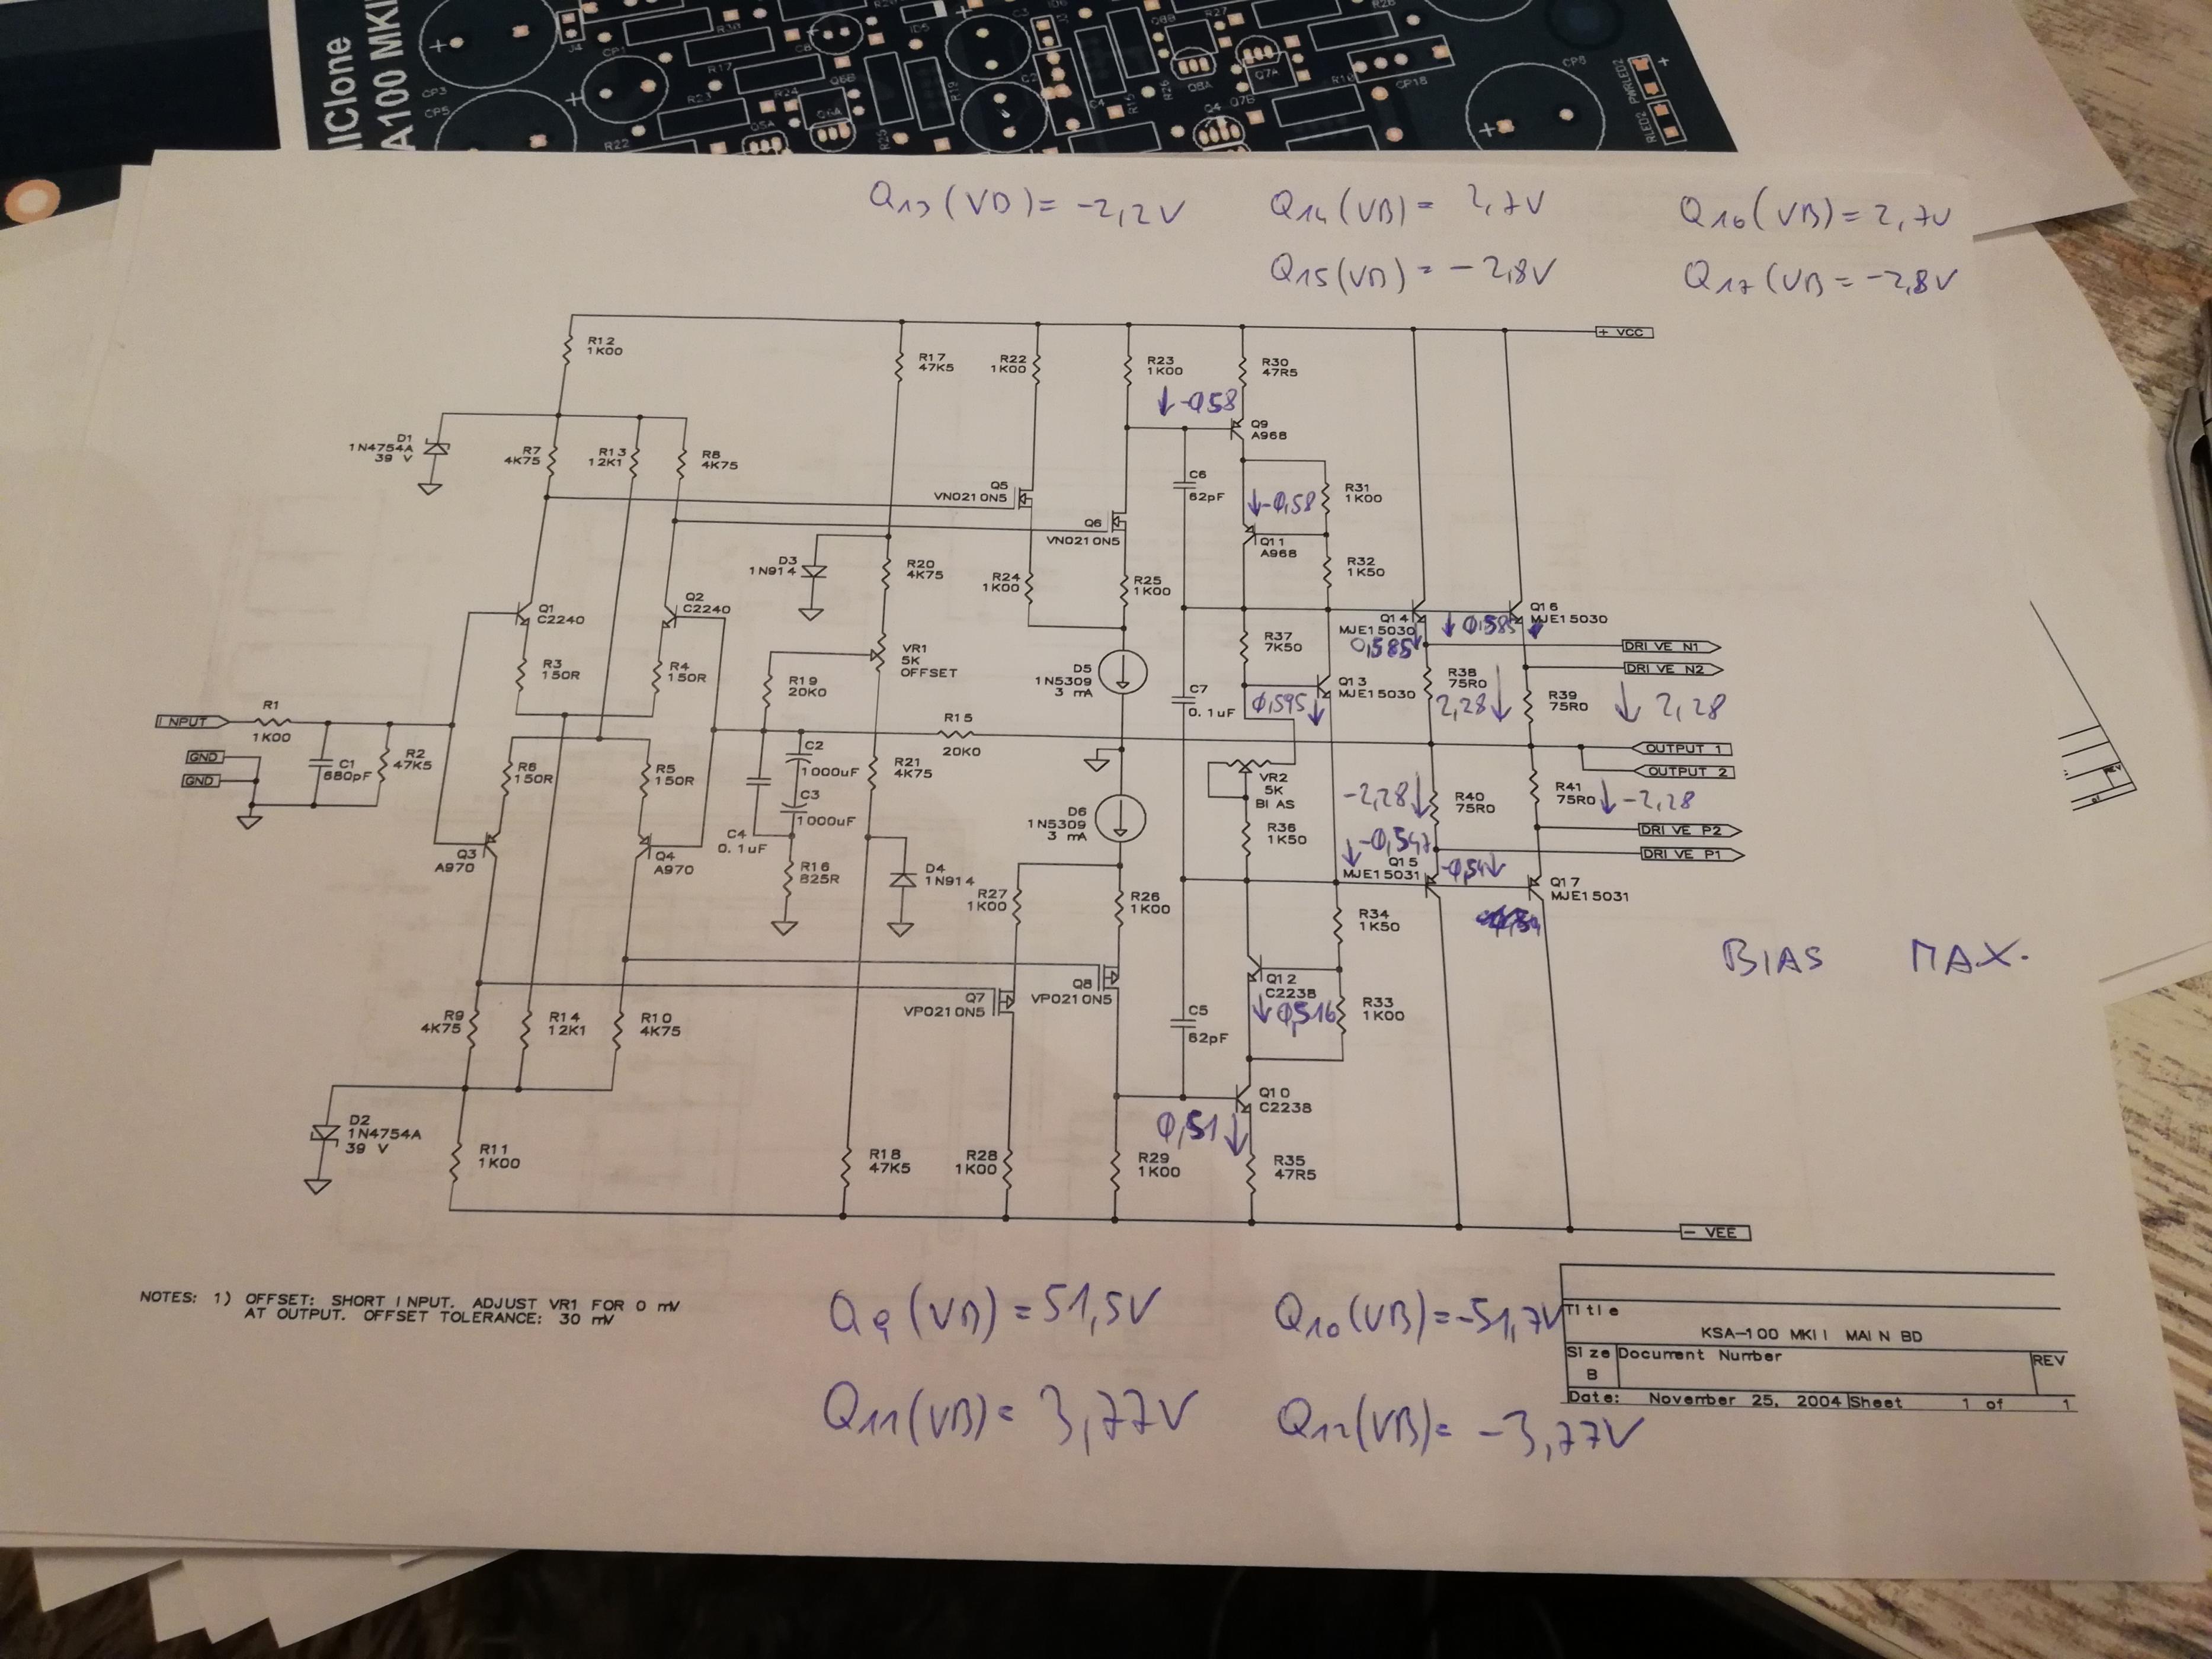 IClone
A100 MKI
CP3
CP5
J4
CP1
R30
R17
C8
R23
R24
R22
Q5A
Q6A
Q6B
R25
R19
ID5
C3
C2
C4
R15
R26
Q8B
Q8A
R27
Q7A
Q7B
Q4
R10
R28
CP16
CP8
PWRLED2
RLED2
Q13 (VB) = -2,2V
Q14 (VB) = 2,7V
Q16 (VB) = 2,7V
Q15 (VB) = -2,8V
Q17 (VB = -2,8V
+ VCC
R12
1K00
R17
47K5
R22
1K00
R23
1K00
R30
47R5
↓ -0,58
Q9
A968
D1
1N4754A
39 V
R7
4K75
R13
12K1
R8
4K75
Q5
VN0210N5
C6
62pF
R31
1K00
↓ -0,58
Q6
VN0210N5
Q11
A968
D3
1N914
R20
4K75
R24
1K00
R25
1K00
R32
1K50
Q1
C2240
Q2
C2240
Q14
MJE15030
0,585
↓ 0,585
Q16
MJE15030
R37
7K50
DRIVE N1
DRIVE N2
R3
150R
R4
150R
VR1
5K
OFFSET
D5
1N5309
3 mA
R19
20K0
Q13
MJE15030
0,595 ↓
R38
75R0
2,28 ↓
R39
75R0
↓ 2,28
C7
0.1uF
INPUT
R1
1K00
R15
20K0
OUTPUT 1
OUTPUT 2
GND
GND
C1
680pF
R2
47K5
R6
150R
R5
150R
C2
1000uF
C3
1000uF
C4
0.1uF
R21
4K75
VR2
5K
BIAS
-2,28 ↓
R40
75R0
R41
75R0
↓ -2,28
D6
1N5309
3 mA
R36
1K50
DRIVE P2
DRIVE P1
↓ -0,547
Q15
MJE15031
-0,54 ↓
Q17
MJE15031
Q3
A970
Q4
A970
R16
825R
D4
1N914
R27
1K00
R26
1K00
R34
1K50
BIAS MAX.
Q8
VP0210N5
Q7
VP0210N5
Q12
C2238
↓ 0,516
R33
1K00
R9
4K75
R14
12K1
R10
4K75
C5
62pF
Q10
C2238
0,51 ↓
D2
1N4754A
39 V
R11
1K00
R18
47K5
R28
1K00
R29
1K00
R35
47R5
- VEE
NOTES: 1) OFFSET: SHORT INPUT. ADJUST VR1 FOR 0 mV
AT OUTPUT. OFFSET TOLERANCE: 30 mV
Q9 (VB) = 51,5V
Q10 (VB) = -51,7V
Q11 (VB) = 3,77V
Q12 (VB) = -3,77V
Title
KSA-100 MKII MAIN BD
Size
B
Document Number
REV
Date: November 25, 2004
Sheet 1 of 1
REV